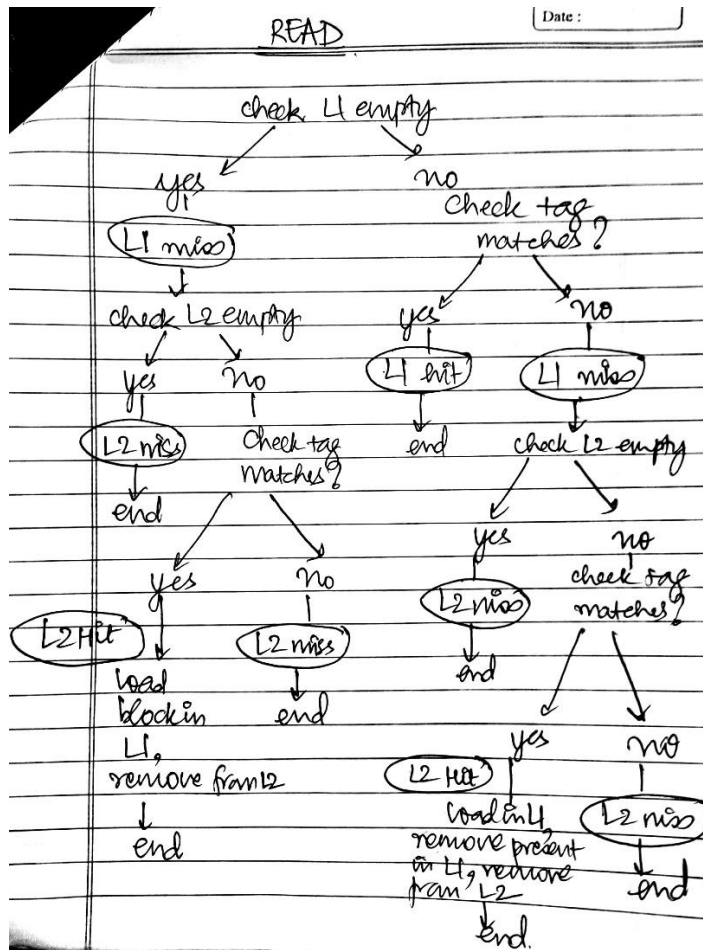 Date :
READ
check L1 empty
yes
no
check tag
matches?
L1 miss
check L2 empty
yes
no
yes
no
L1 hit
L1 miss
L2 miss
check tag
matches?
end
check L2 empty
end
yes
no
yes
no
check tag
matches?
L2 Hit
L2 miss
L2 miss
load
block in
L1,
remove from L2
end
end
end
yes
no
L2 Hit
load in L1,
remove present
in L1, remove
from L2
end.
L2 miss
end